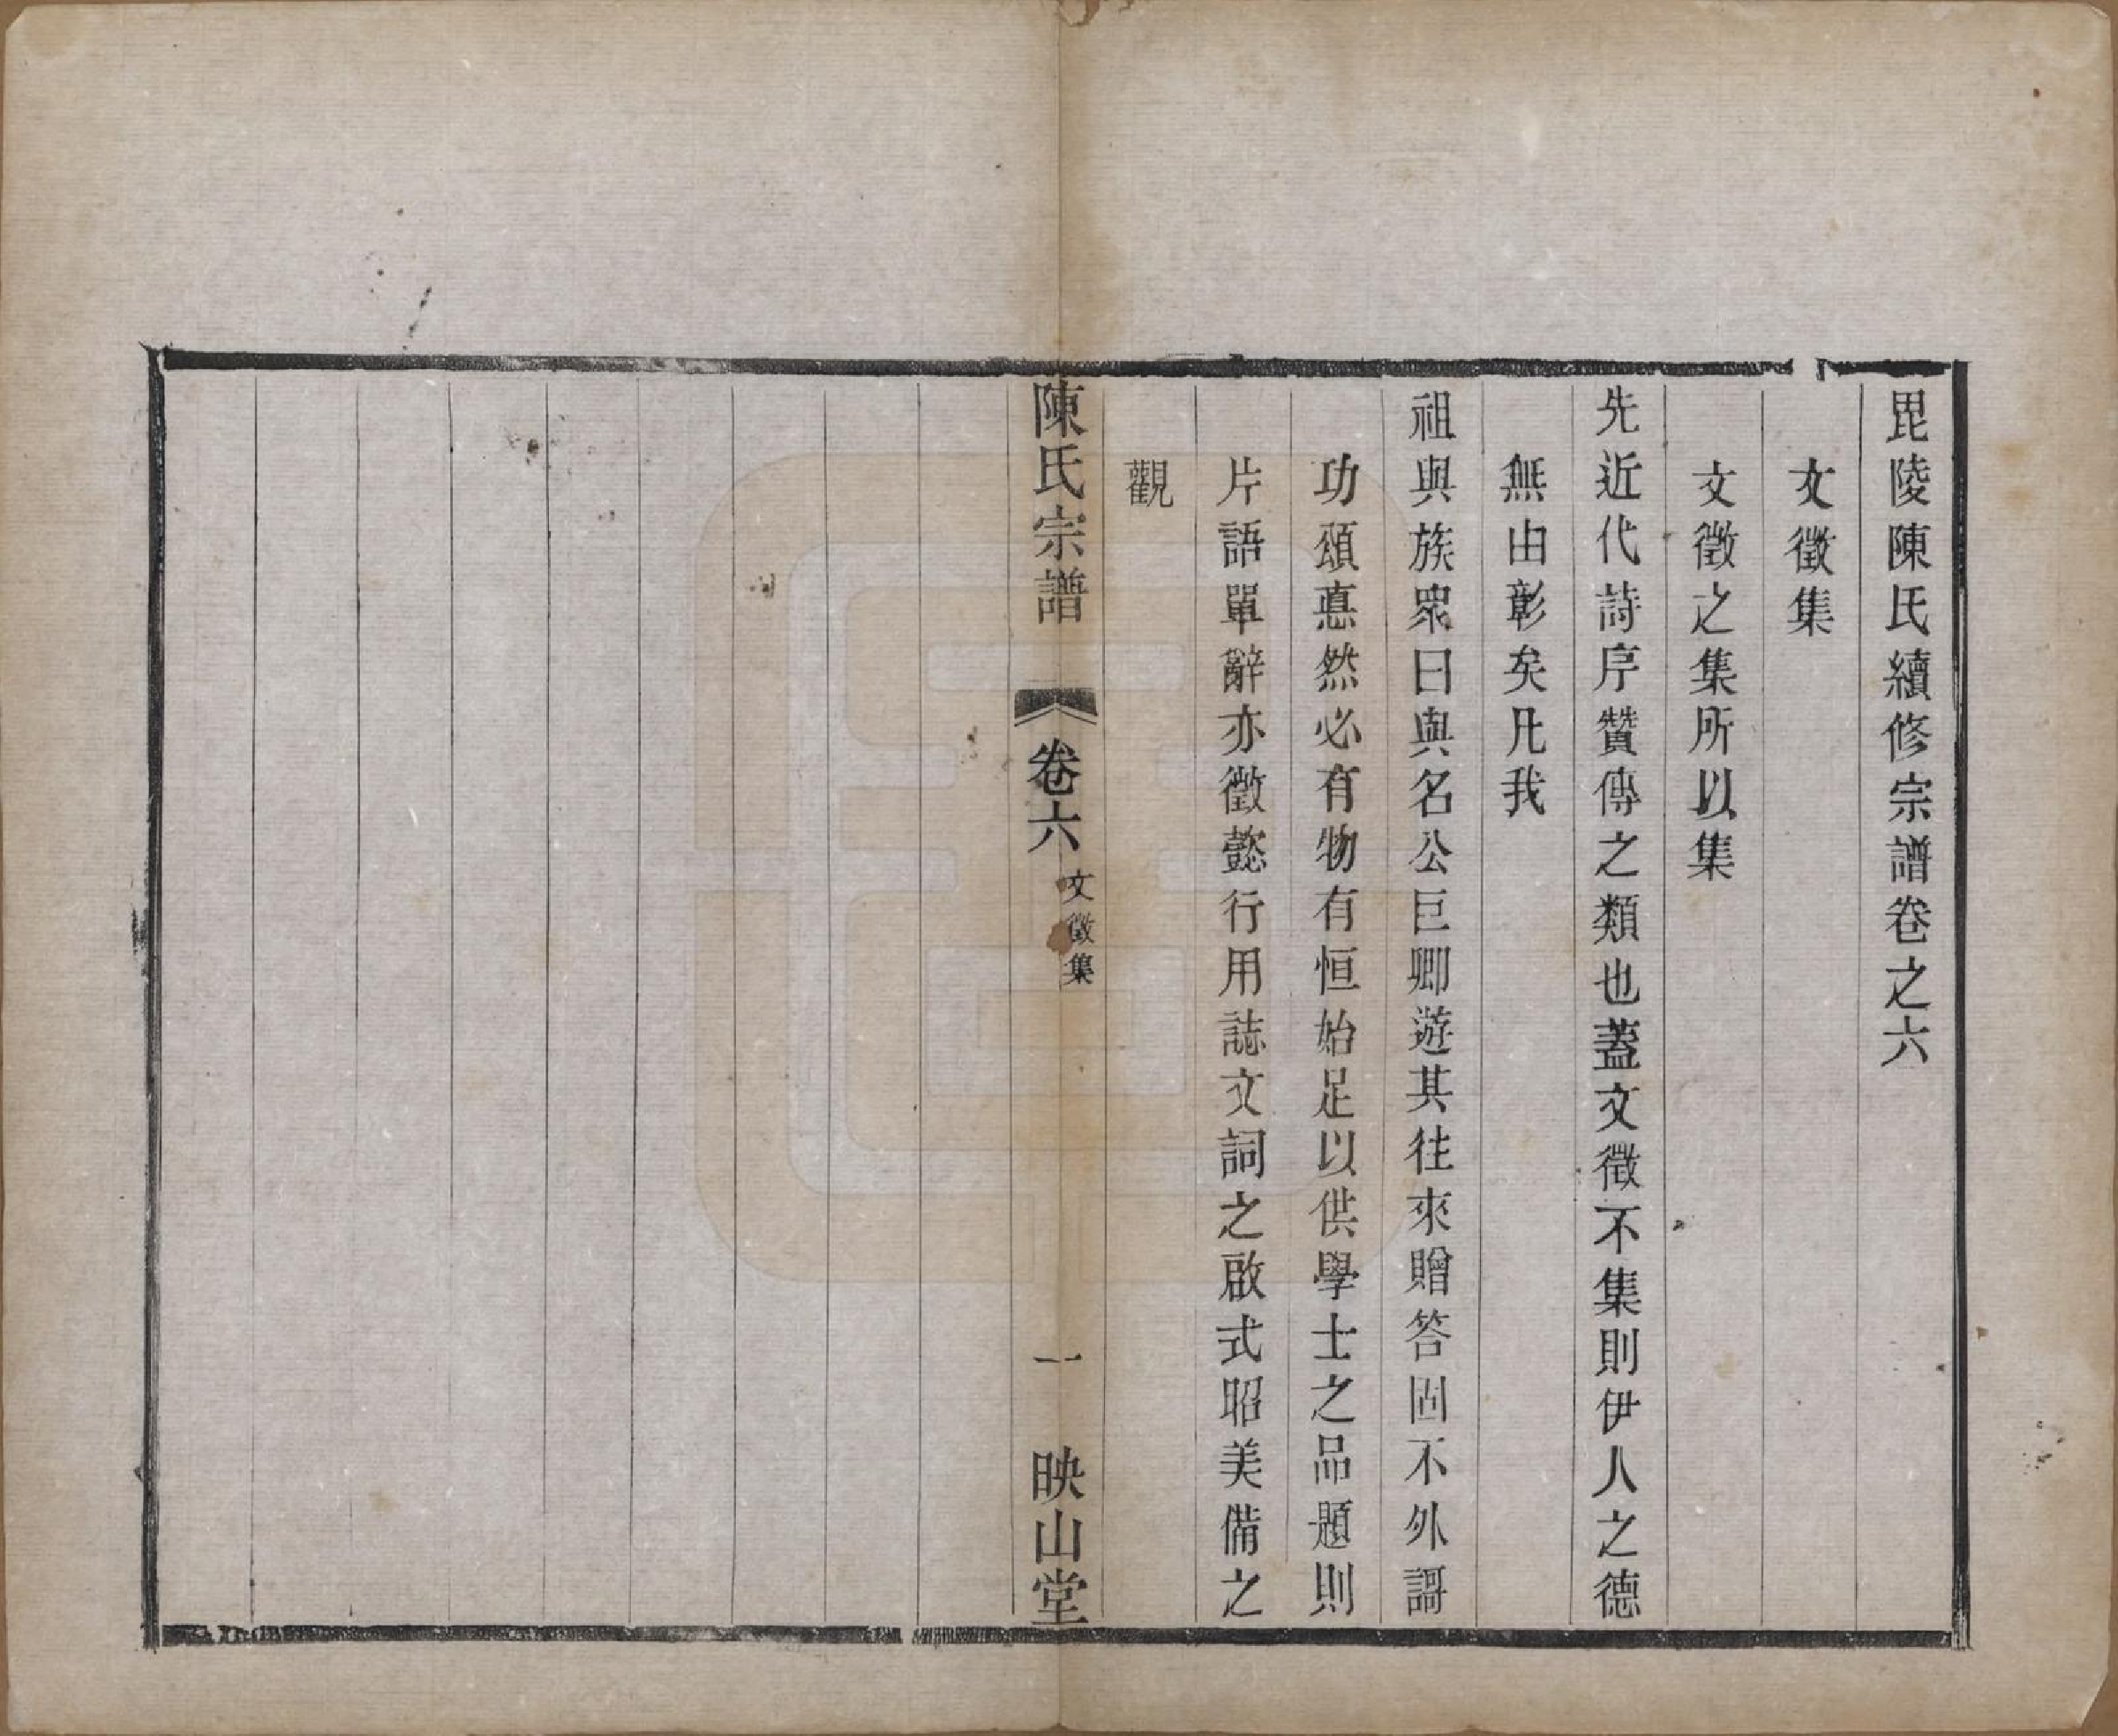 毘陵陳氏續修宗譜卷之六
文徵集
文徵之集所以集
先近代詩序贊傳之類也蓋文徵不集則伊人之德
無由彰矣凡我
祖與族眾曰與名公巨卿遊其往來贈答固不外謌
功頌悳然必有物有恒始足以供學士之品題則
片語單辭亦徵懿行用誌文詞之啟式昭美備之
觀
陳氏宗譜
卷六
文徵集
一
映山堂